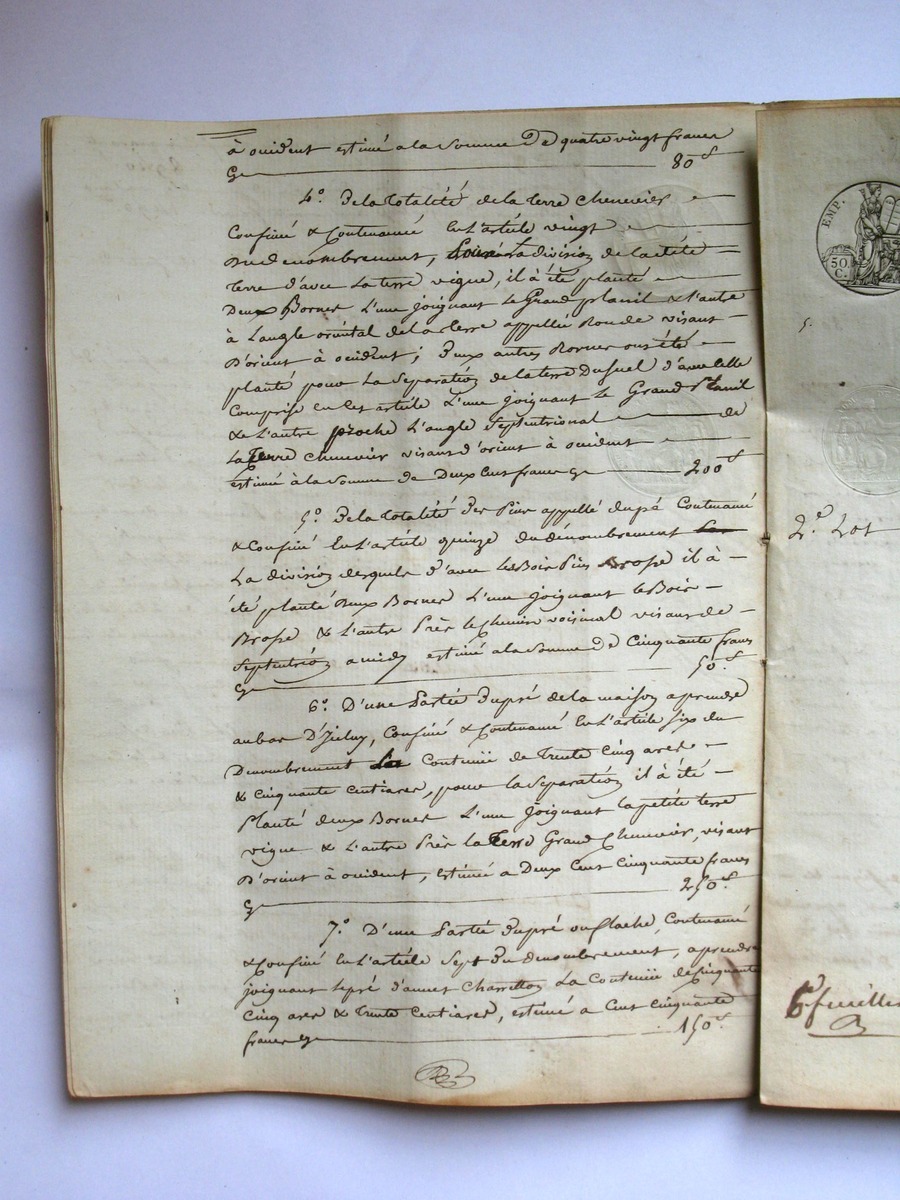 à occident estimé a la Somme De quatre vingt francs
Cy 80 f
4.° De la Totalité de la terre chenevier
Confiné & Contenancé En L'article vingt
Du denombrement, la division de la dte
terre d'avec La terre vigne, il à été planté
Deux Bornes L'une joignant Le Grand & l'autre
à L'angle oriental de la terre appellée Ronde visant
D'orient à occident ; Deux autres Bornes ont été
planté pour La Separation de la terre Dusuel d'avec celle
Comprise en Cet article L'une joignant Le Grand
& L'autre proche L'angle Septentrional de
La Terre Chenevier visant d'orient à occident
estimé à la Somme de Deux Cent francs Cy 200 f
5.° De la totalité Des Pins appellé Contenancé
& Confiné En L'article quinze du dénombrement
La division desquels d'avec les Bois Pins Brosse il à
été planté Deux Bornes L'une joignant le Bois
Brosse & L'autre Près le Chemin voisinal visant de
Septentrion a midy estimé a la Somme De Cinquante francs
Cy 50 f
6.° D'une Partie Du pré de la maison a prendre
au bas D'Icelui, Confiné & Contenancé En L'article Six du
Denombrement Contenu de Trente Cinq ares
& Cinquante Centiares, pour la Separation il à été
Planté deux Bornes L'une Joignant la petite terre
vigne & L'autre Près la Terre Grand Chenevier, visant
D'orient à occident, estimée a Deux Cent Cinquante francs
Cy 250 f
7.° D'une Partie Du pré Contenancé
& Confiné En L'article Sept Du denombrement, a prendre
joignant le pré d'annet Charretton La Contenue de Cinquante
Cinq ares & Trente Centiares, estimé a Cent Cinquante
francs Cy 150 f
EMP.
50
C.
2.e Lot